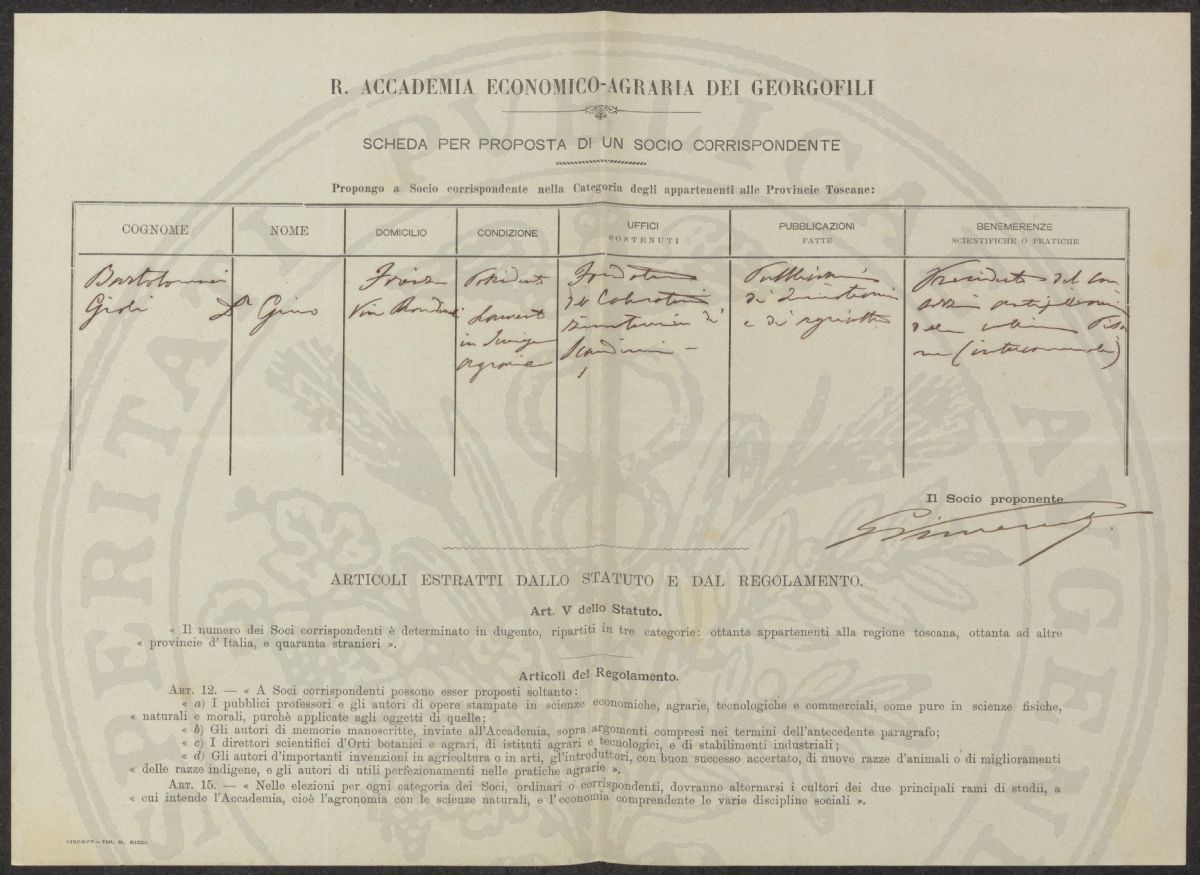 R. ACCADEMIA ECONOMICO-AGRARIA DEI GEORGOFILI
SCHEDA PER PROPOSTA DI UN SOCIO CORRISPONDENTE
Propongo a Socio corrispondente nella Categoria degli appartenenti alle Provincie Toscane:
COGNOME
NOME
DOMICILIO
CONDIZIONE
UFFICI
SOSTENUTI
PUBBLICAZIONI
FATTE
BENEMERENZE
SCIENTIFICHE O PRATICHE
Bartolommei
Gioli
Dr Gino
Firenze
Via
Possidente
in
agrarie
di
Pubblicazioni
di Zootecnia
e di agricoltura
Presidente del con
(intercomunale)
Il Socio proponente
ARTICOLI ESTRATTI DALLO STATUTO E DAL REGOLAMENTO.
Art. V dello Statuto.
« Il numero dei Soci corrispondenti è determinato in dugento, ripartiti in tre categorie: ottanta appartenenti alla regione toscana, ottanta ad altre
« provincie d' Italia, e quaranta stranieri ».
Articoli del Regolamento.
ART. 12. — « A Soci corrispondenti possono esser proposti soltanto:
« a) I pubblici professori e gli autori di opere stampate in scienze economiche, agrarie, tecnologiche e commerciali, come pure in scienze fisiche,
« naturali e morali, purchè applicate agli oggetti di quelle;
« b) Gli autori di memorie manoscritte, inviate all'Accademia, sopra argomenti compresi nei termini dell'antecedente paragrafo;
« c) I direttori scientifici d'Orti botanici e agrari, di istituti agrari e tecnologici, e di stabilimenti industriali;
« d) Gli autori d'importanti invenzioni in agricoltura o in arti, gl'introduttori, con buon successo accertato, di nuove razze d'animali o di miglioramenti
« delle razze indigene, e gli autori di utili perfezionamenti nelle pratiche agrarie ».
ART. 15. — « Nelle elezioni per ogni categoria dei Soci, ordinari o corrispondenti, dovranno alternarsi i cultori dei due principali rami di studii, a
« cui intende l'Accademia, cioè l'agronomia con le scienze naturali, e l'economia comprendente le varie discipline sociali ».
FIRENZE - TIP. M. RICCI